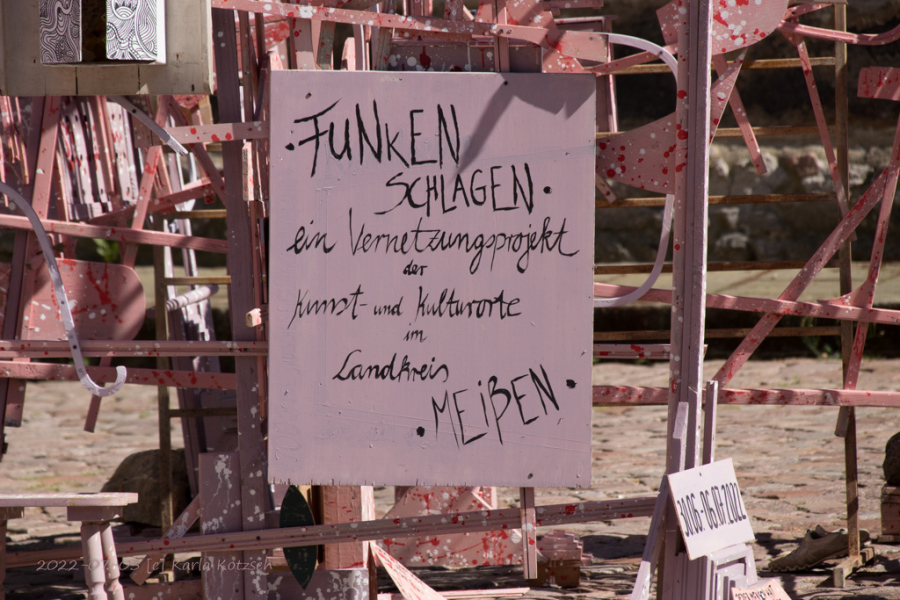 ·FUNKEN
SCHLAGEN·
ein Vernetzungsprojekt
der
Kunst- und Kulturorte
im
Landkreis
·MEißEN·
30.06.-06.07.2022
2022-07-03 [c] Karla Kötzsch